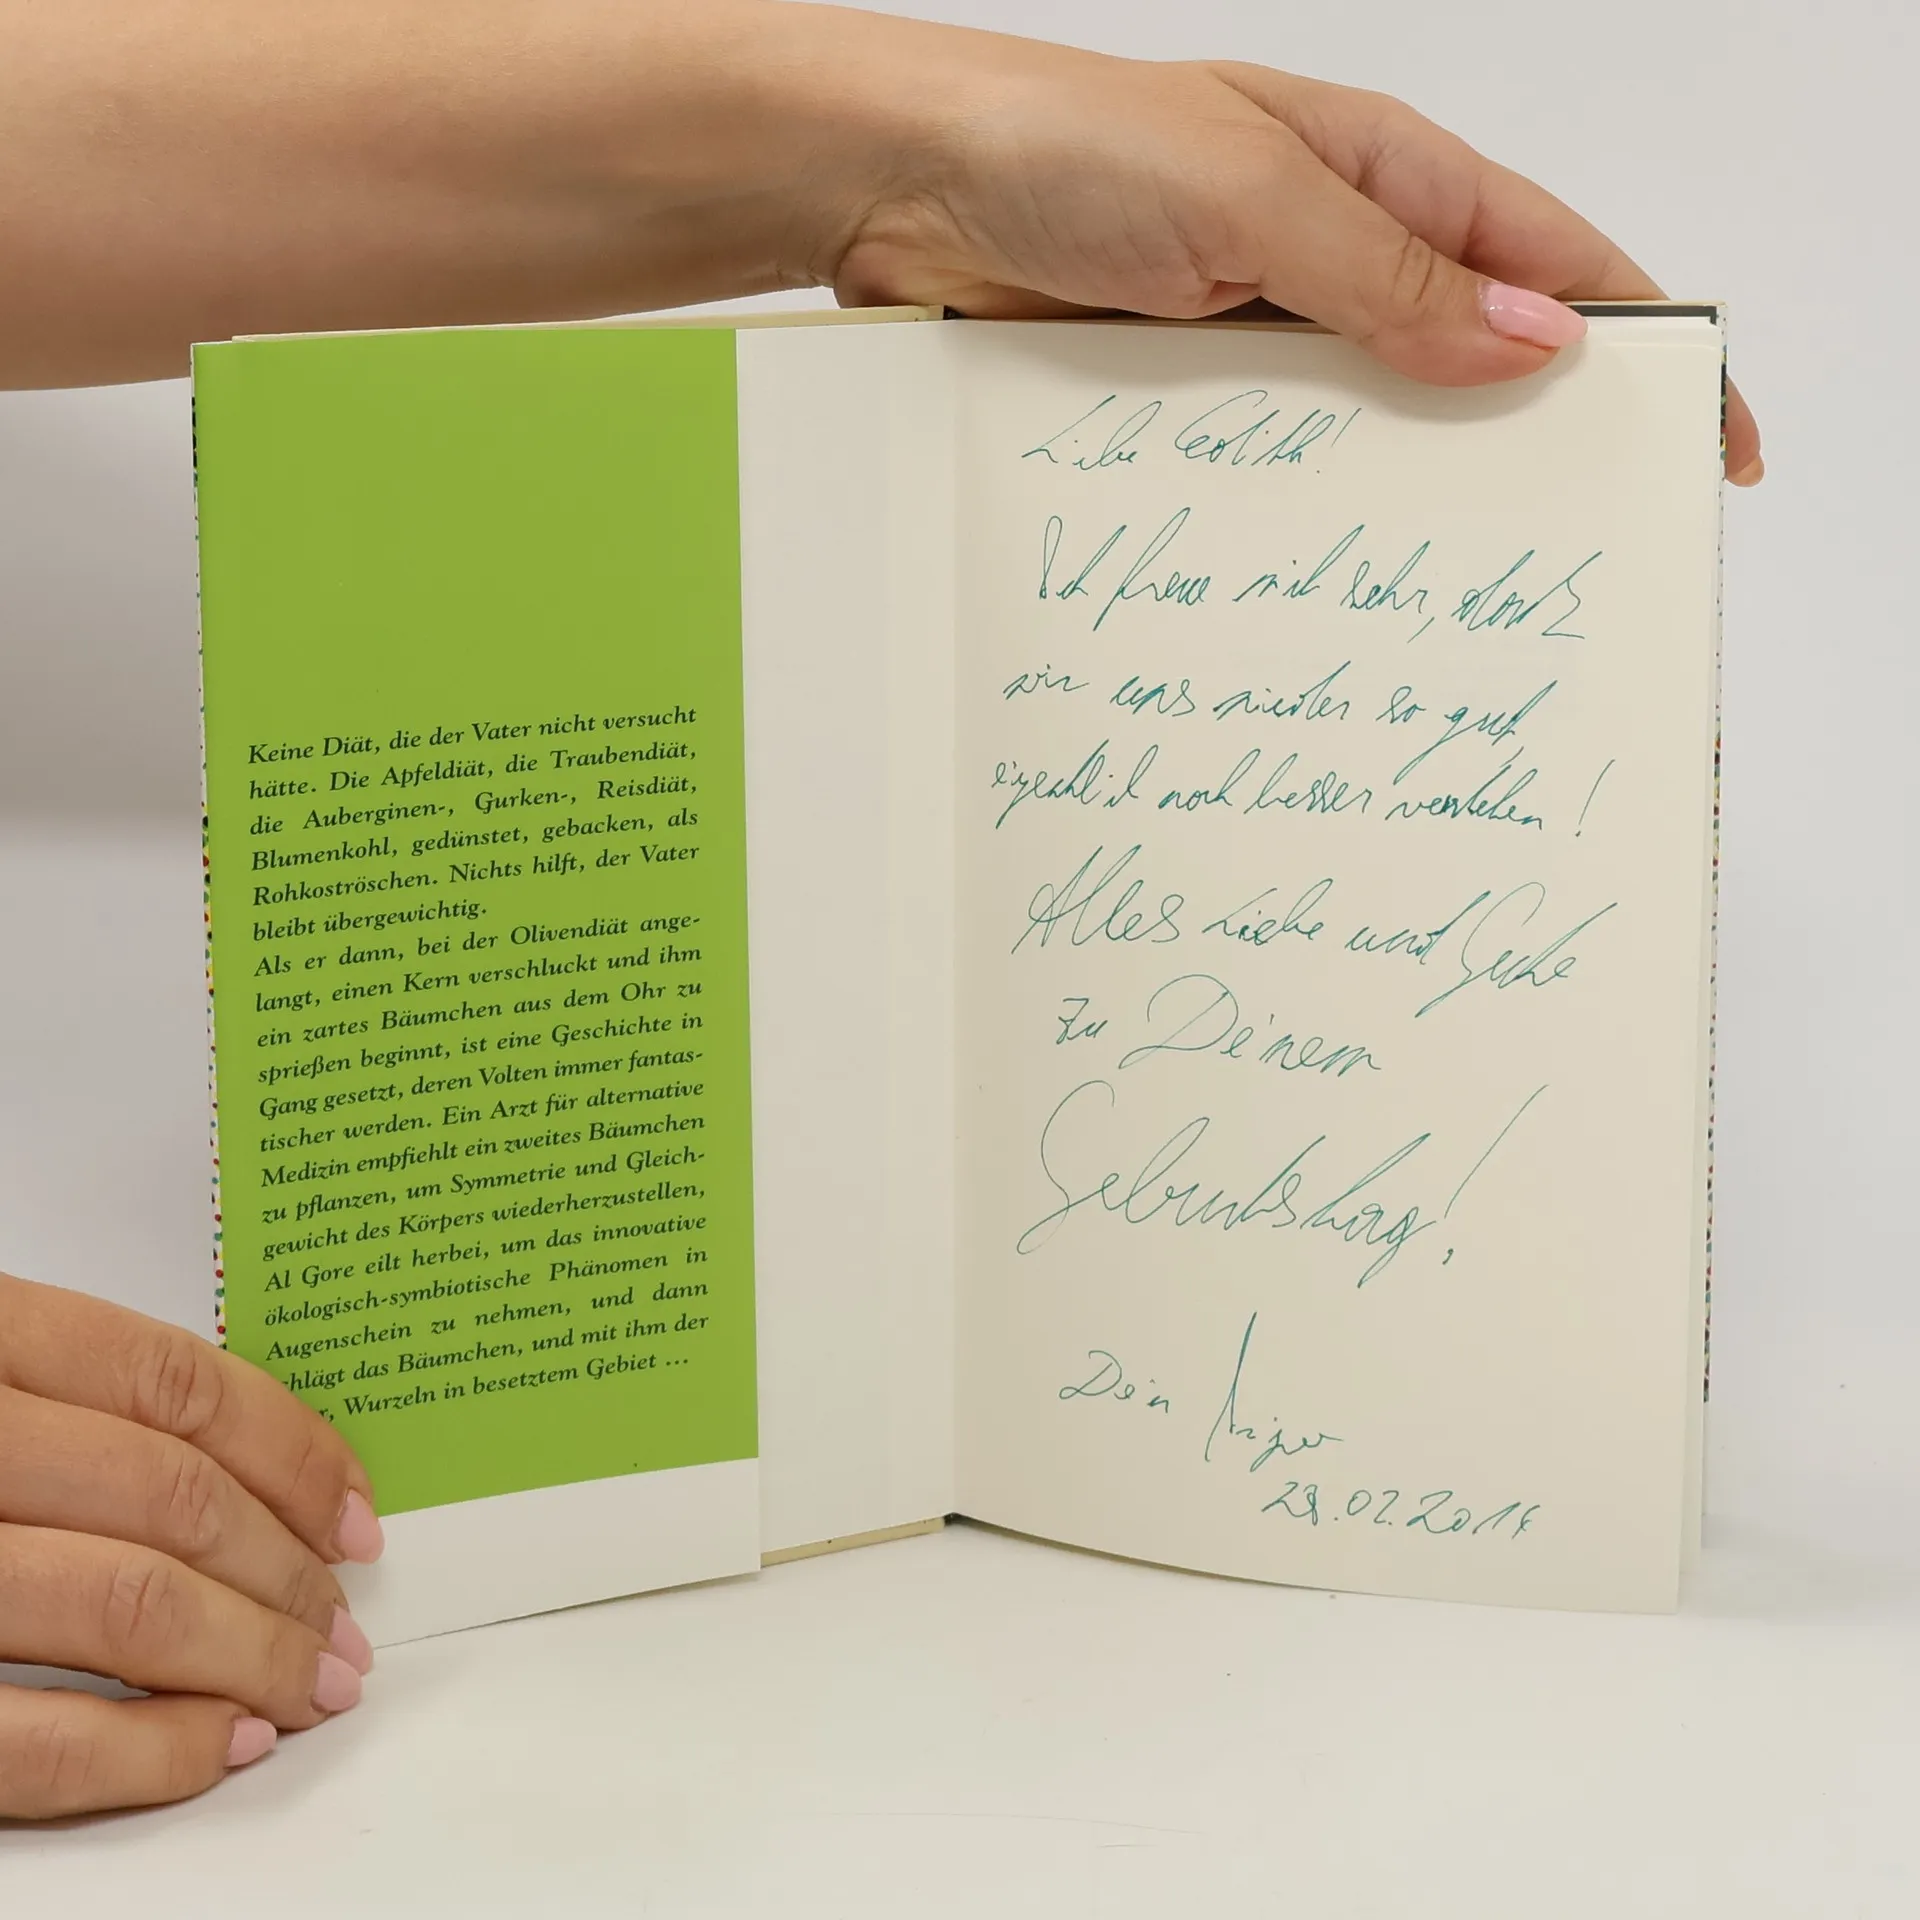 Keine Diät, die der Vater nicht versucht
hätte. Die Apfeldiät, die Traubendiät,
die Auberginen-, Gurken-, Reisdiät,
Blumenkohl, gedünstet, gebacken, als
Rohkoströschen. Nichts hilft, der Vater
bleibt übergewichtig.
Als er dann, bei der Olivendiät ange-
langt, einen Kern verschluckt und ihm
ein zartes Bäumchen aus dem Ohr zu
sprießen beginnt, ist eine Geschichte in
Gang gesetzt, deren Volten immer fantas-
tischer werden. Ein Arzt für alternative
Medizin empfiehlt ein zweites Bäumchen
zu pflanzen, um Symmetrie und Gleich-
gewicht des Körpers wiederherzustellen,
Al Gore eilt herbei, um das innovative
ökologisch-symbiotische Phänomen in
Augenschein zu nehmen, und dann
hlägt das Bäumchen, und mit ihm der
r, Wurzeln in besetztem Gebiet ...
Liebe Edith!
Ich freue mich sehr, dass
wir uns wieder so gut,
eigentlich noch besser verstehen!
Alles Liebe und Gute
zu Deinem
Geburtstag!
Dein
28.02.2014